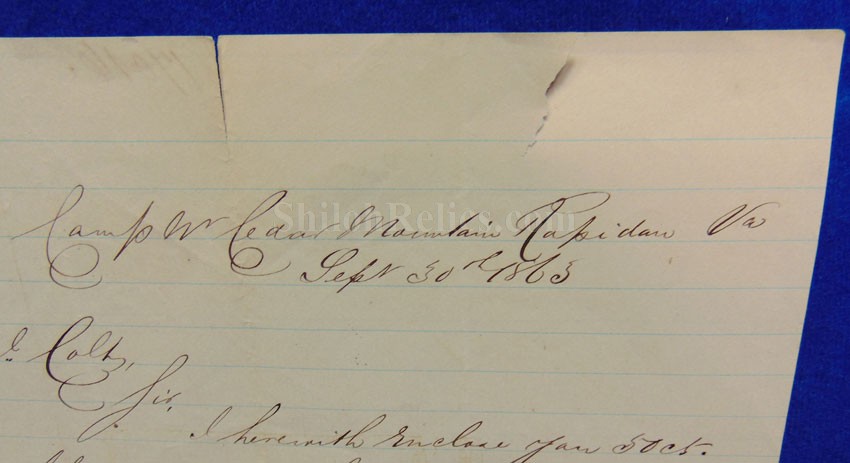 Camp Nr Cedar Mountain Rapidan Va
ShilohRelics.com
Sept 30th 1863
Colt,
Sir,
I herewith enclose you 50 cts.